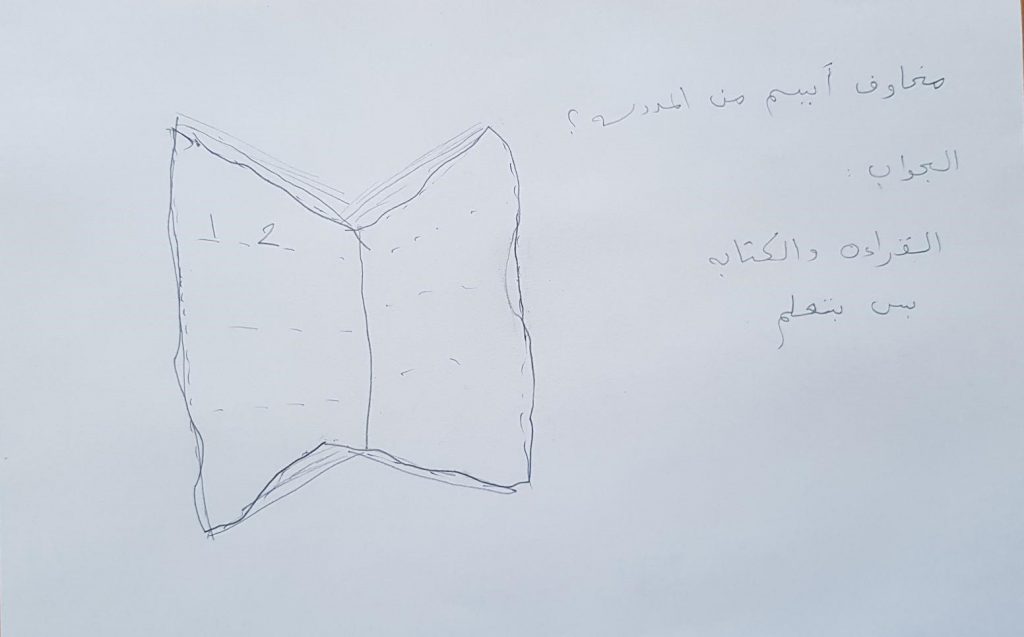 مخاوف أبيسم من المدرسه ؟
الجواب :
القراءه والكتابه
بس بتعلم
1 2